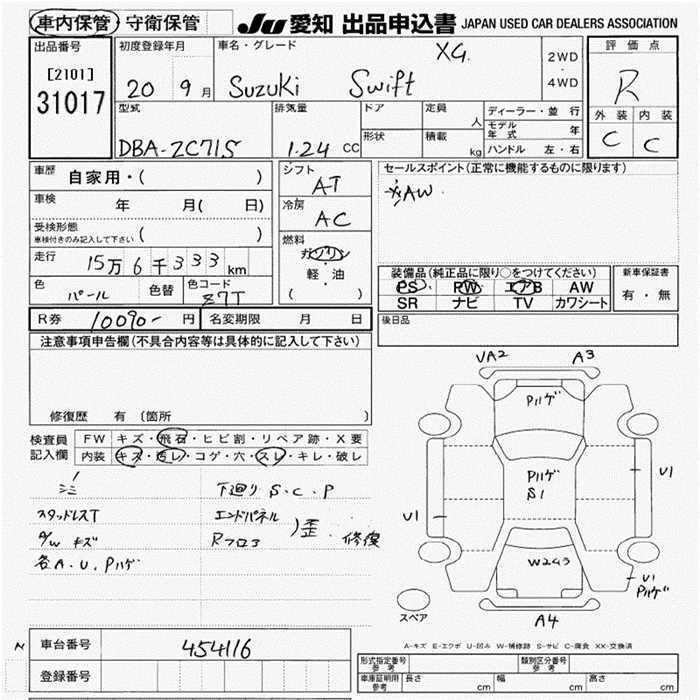 車内保管・守衛保管
JU 愛知 出品申込書 JAPAN USED CAR DEALERS ASSOCIATION
出品番号
[2101]
31017
初度登録年月
20 9月
車名・グレード
XG
Suzuki Swift
2WD
・
4WD
評価点
R
外装 内装
C C
型式
DBA-ZC71S
排気量
1.24 CC
ドア
形状
定員
人
積載
kg
ディーラー・並行
モデル年式 年
ハンドル 左・右
車歴 自家用・( )
車検 年 月( 日)
受検形態
車検付きのみ記入して下さい ( )
走行 15万6千333km
色 パール
色替
色コード Z7T
シフト
AT
冷房
AC
燃料
ガソリン
・
軽・油
( )
セールスポイント(正常に機能するものに限ります)
AW
装備品(純正品に限り○をつけてください)
PS PW エアB AW
SR ナビ TV カワシート
新車保証書
有・無
R券 10090- 円
名変期限 月 日
後日品
注意事項申告欄(不具合内容等は具体的に記入して下さい)
修復歴 有 〔箇所 〕
検査員
記入欄
FW キズ・飛石・ヒビ割・リペア跡・X要
内装 キズ・汚レ・コゲ・穴・スレ・キレ・破レ
シミ
下廻り S.C.P
スタッドレスT
エンドパネル
A/W キズ
Rフロア
歪.修復
各A.U.Pハゲ
VA2 A3
Pハゲ
Pハゲ
S1
U1
U1
W2 3
U1
Pハゲ
A4
スペア
A-キズ E-エクボ U-凹み W-補修跡 S-サビ C-腐食 XX-交換済
N
車台番号 454116
登録番号
形式指定番号
参考
類別区分番号
参考
車庫証明用
参考
長さ cm
幅 cm
高さ cm